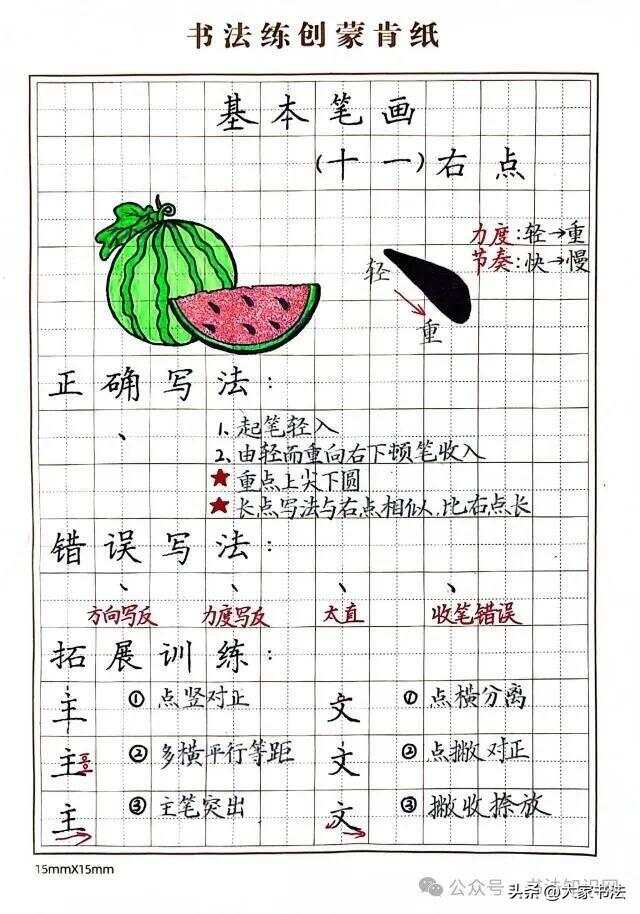 书法练创蒙肯纸
基本笔画
(十一)右点
力度:轻→重
节奏:快→慢
轻
重
正确写法:
1.起笔轻入
2.由轻而重向右下顿笔收入
★重点上尖下圆
★长点写法与右点相似,比右点长
错误写法:
方向写反 力度写反 太直 收笔错误
拓展训练:
主 ①点竖对正 文 ①点横分离
主 ②多横平行等距 文 ②点撇对正
主 ③主笔突出 文 ③撇收捺放
15mmX15mm
公众号·书法知识网
头条@大家书法